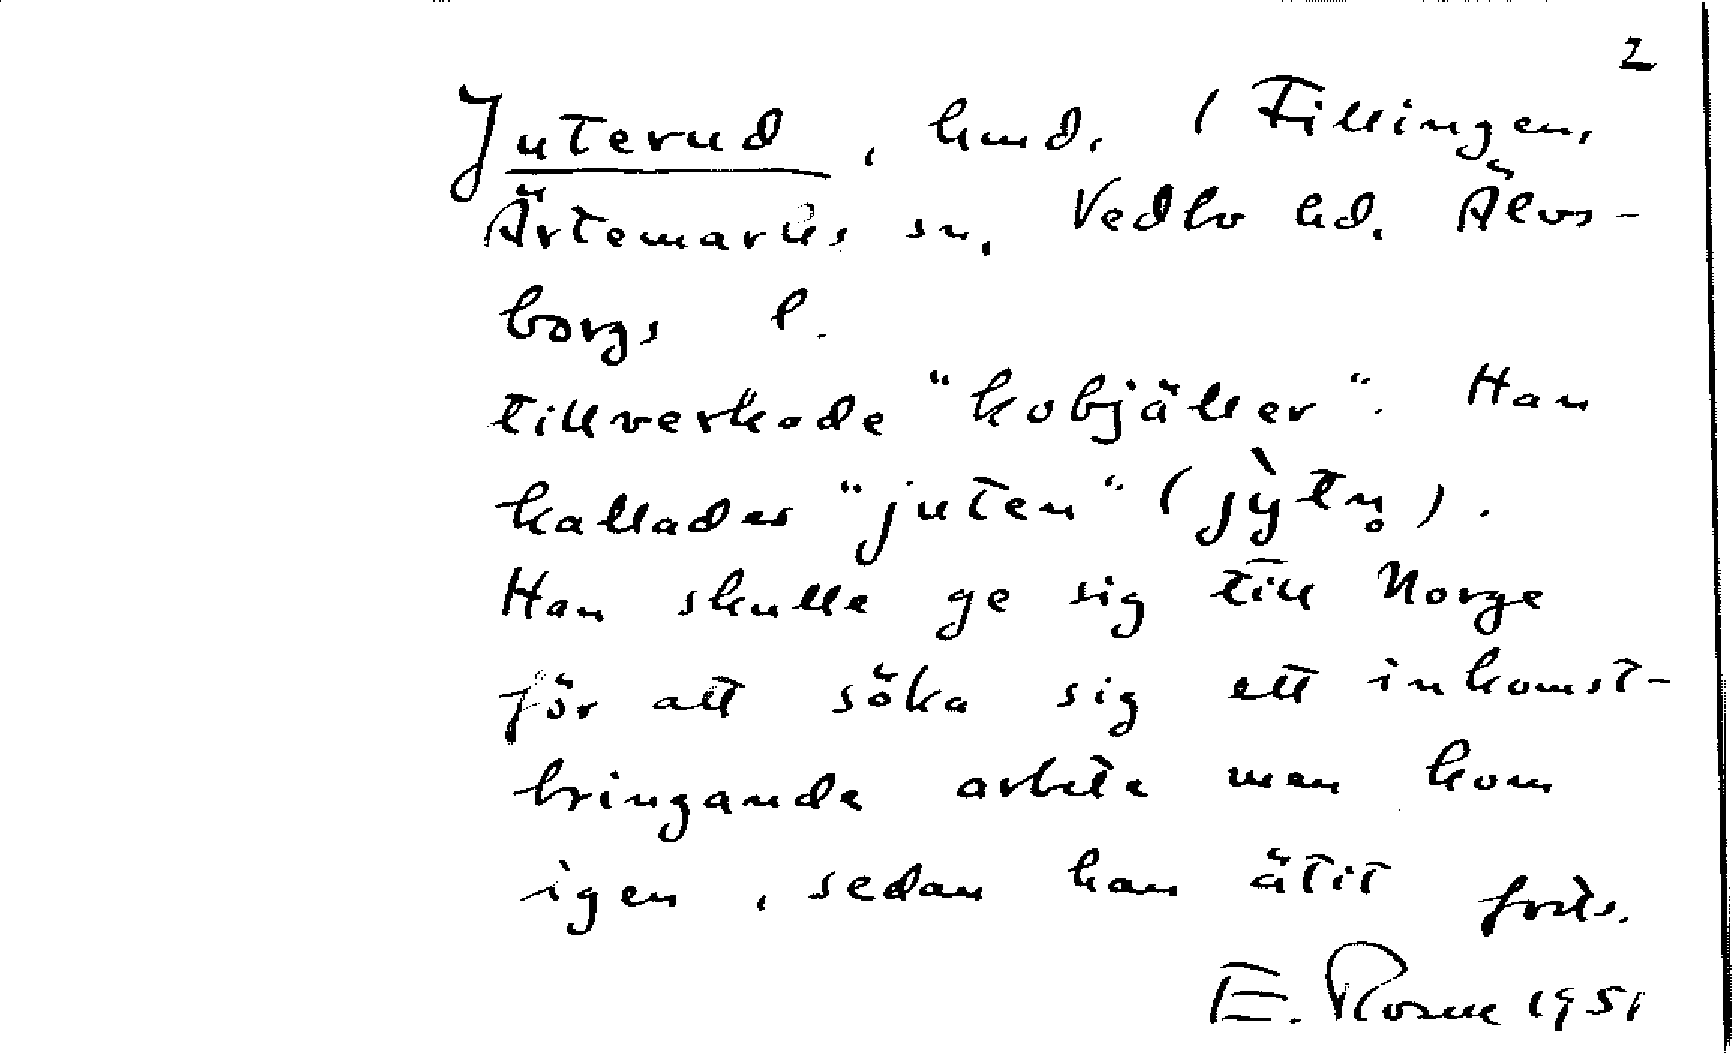 2
Juterud, hmd. (Fillingen,
Ärtemarks sn, Vedbo hd. Älvs-
borgs l.
tillverkade "kobjäller". Han
kallades "juten" (jỳtn̥).
Han skulle ge sig till Norge
för att söka sig ett inkomst-
bringande arbete men kom
igen, sedan han ätit forts.
E. Rosell 1951